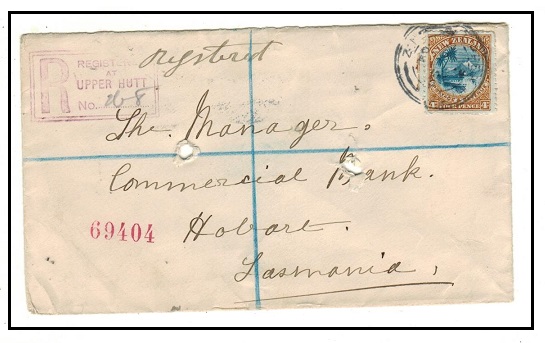 Registered
REGISTERED
AT
UPPER HUTT
R
No.
NEW ZEALAND
4 FOUR PENCE 4
The Manager.
Commercial Bank.
69404
Hobart.
Tasmania,